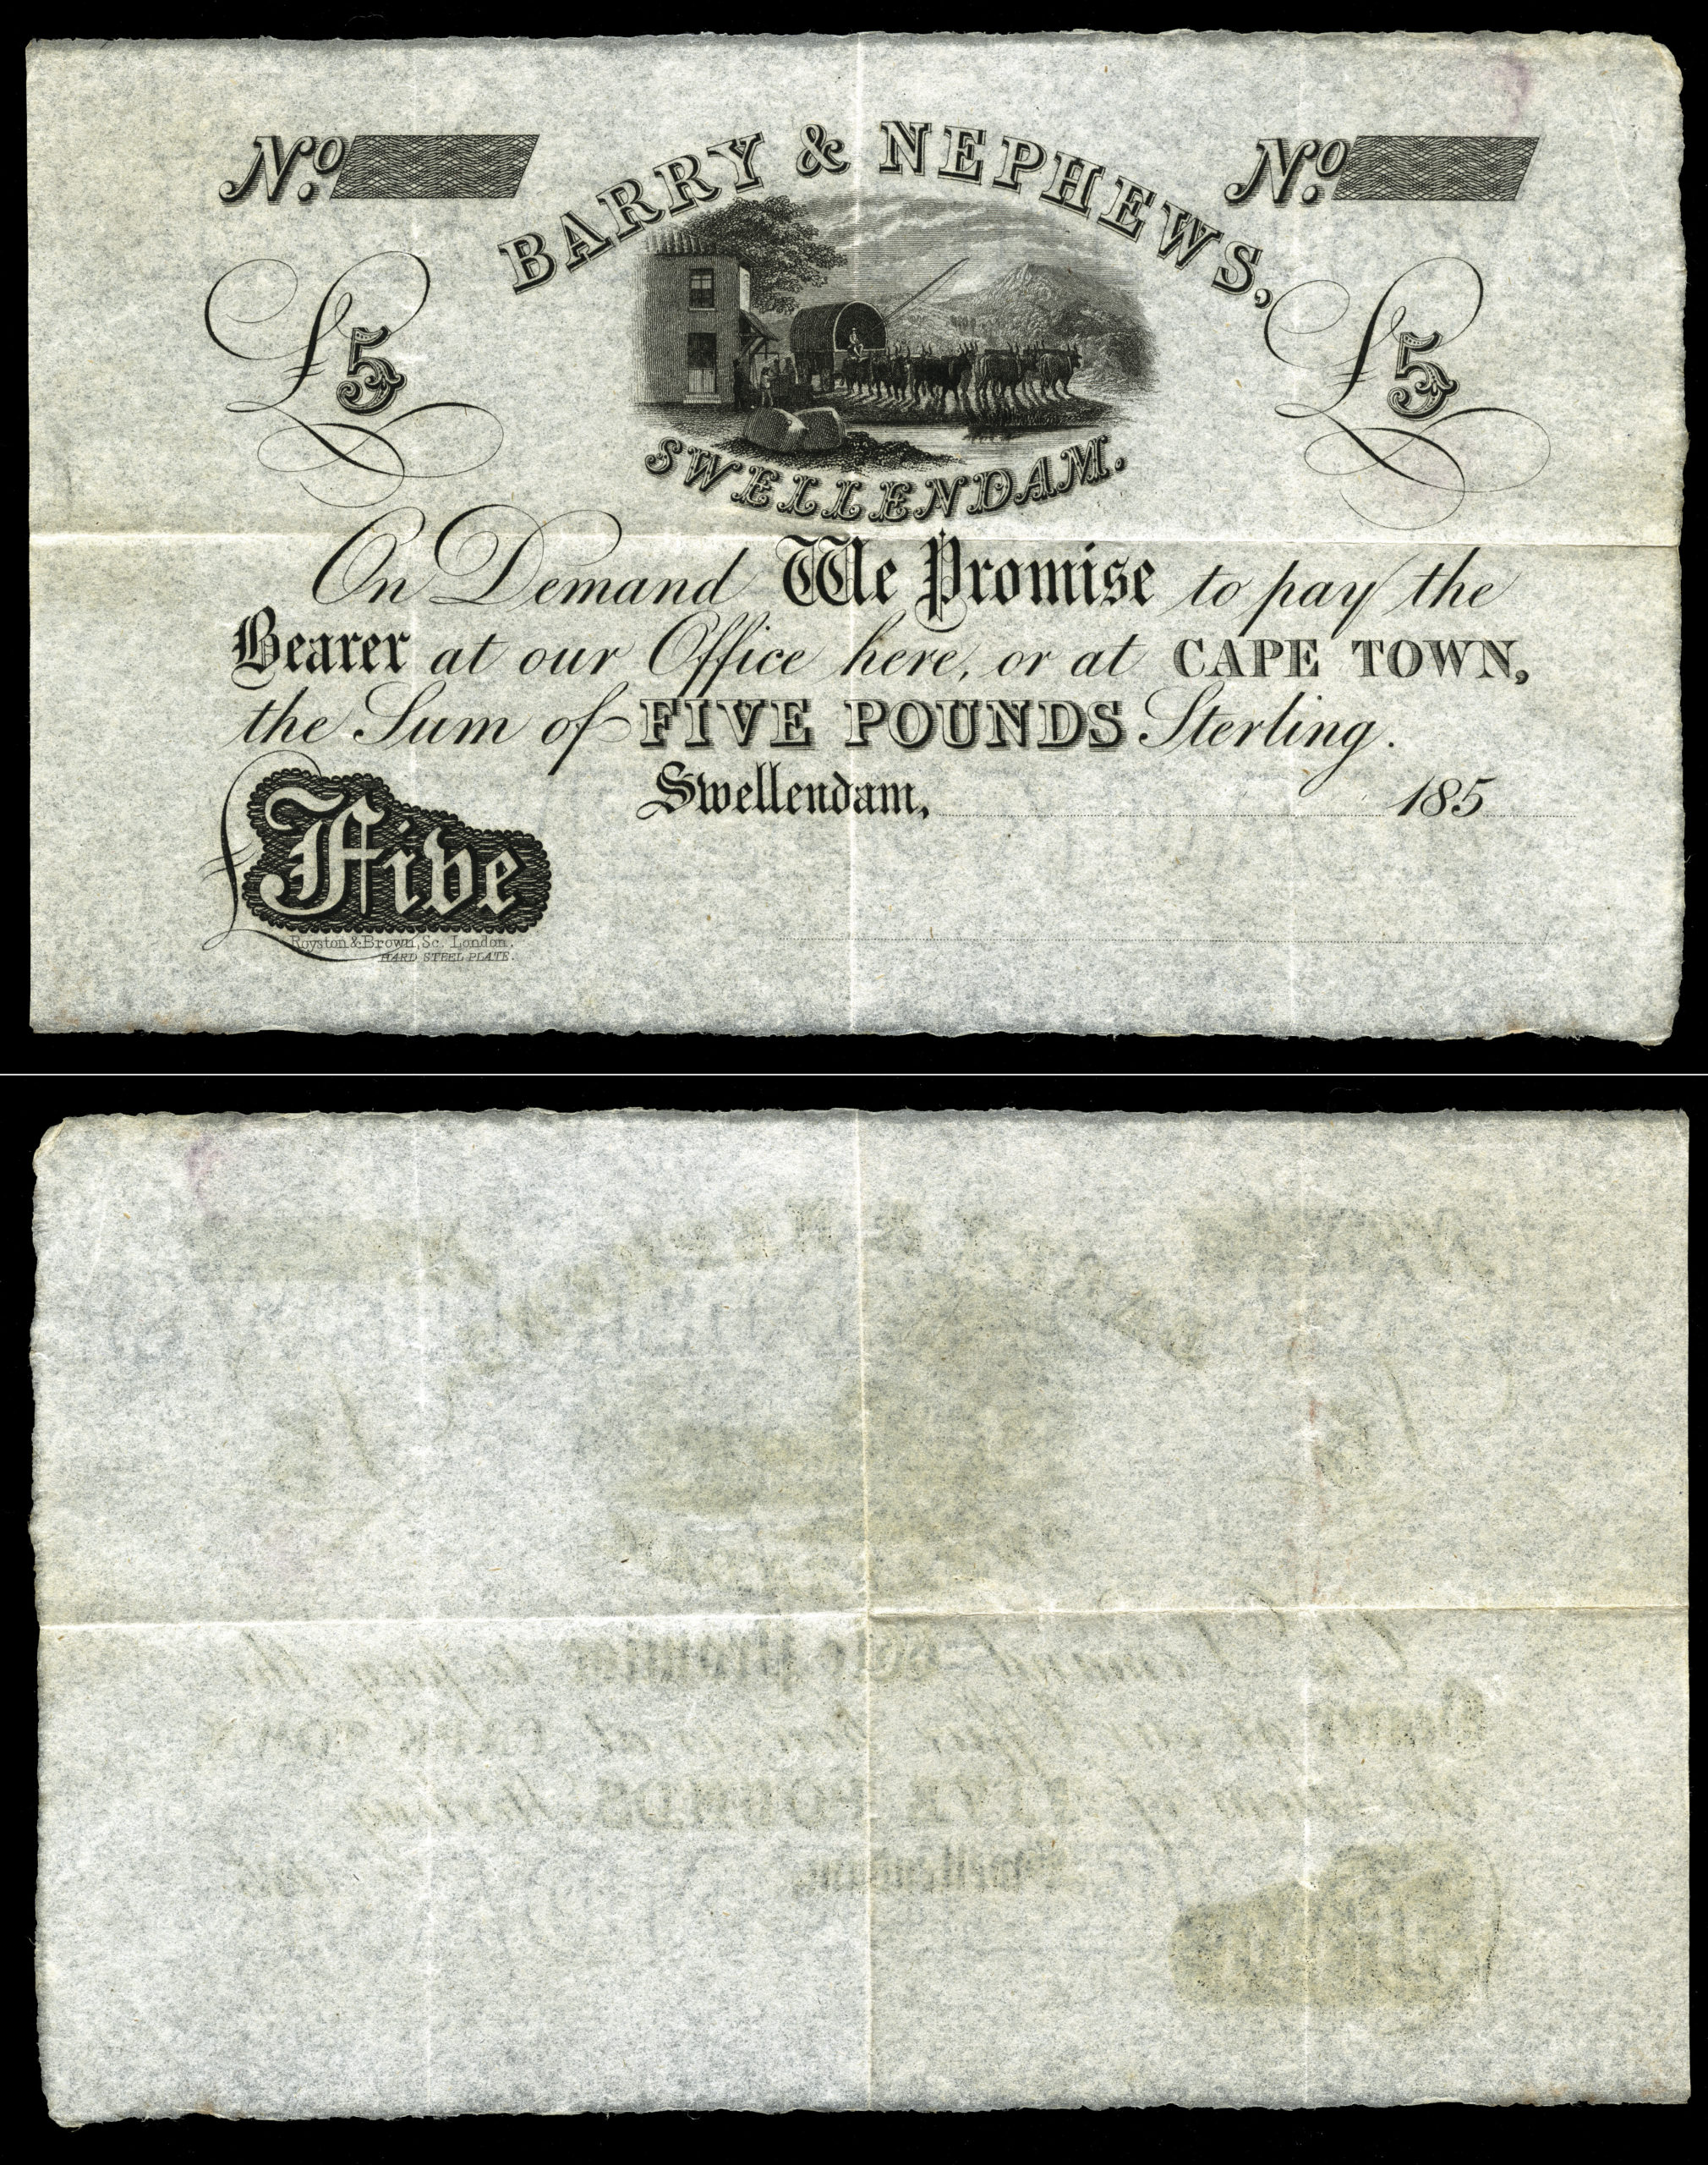 No. No.
BARRY & NEPHEWS,
£5 £5
SWELLENDAM.
On Demand We Promise to pay the
Bearer at our Office here, or at CAPE TOWN,
the Sum of FIVE POUNDS Sterling.
Swellendam, 185
£Five
Royston & Brown, Sc. London.
HARD STEEL PLATE.